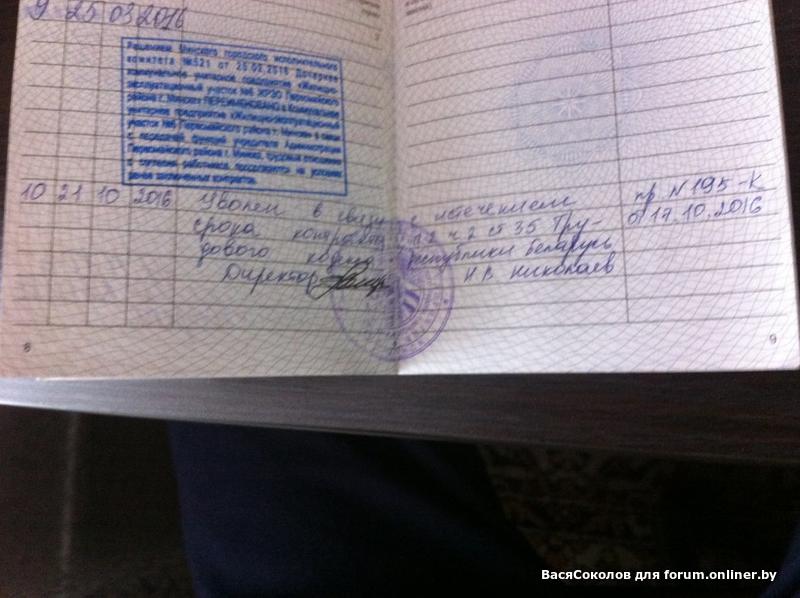 9 25 03 2016
Решением Минского городского исполнительного
комитета №521 от 25.02.2016 Дочернее
коммунальное унитарное предприятие «Жилищно-
эксплуатационный участок №6 ЖРЭО Первомайского
района г. Минска» ПЕРЕИМЕНОВАНО в Коммунальное
унитарное предприятие «Жилищно-эксплуатационный
участок №6 Первомайского района г. Минска» в связи
с передачей функций учредителя Администрации
Первомайского района г. Минска, трудовые отношения
с согласия работников, продолжаются на условиях
ранее заключенных контрактов.
10 21 10 2016 Уволен в связи с истечением пр N 195-К
срока контракта п.2 ч 2 ст 35 Тру- от 17.10.2016
дового кодекса республики беларусь
Директор Н.В. Николаев
8
9
ВасяСоколов для forum.onliner.by